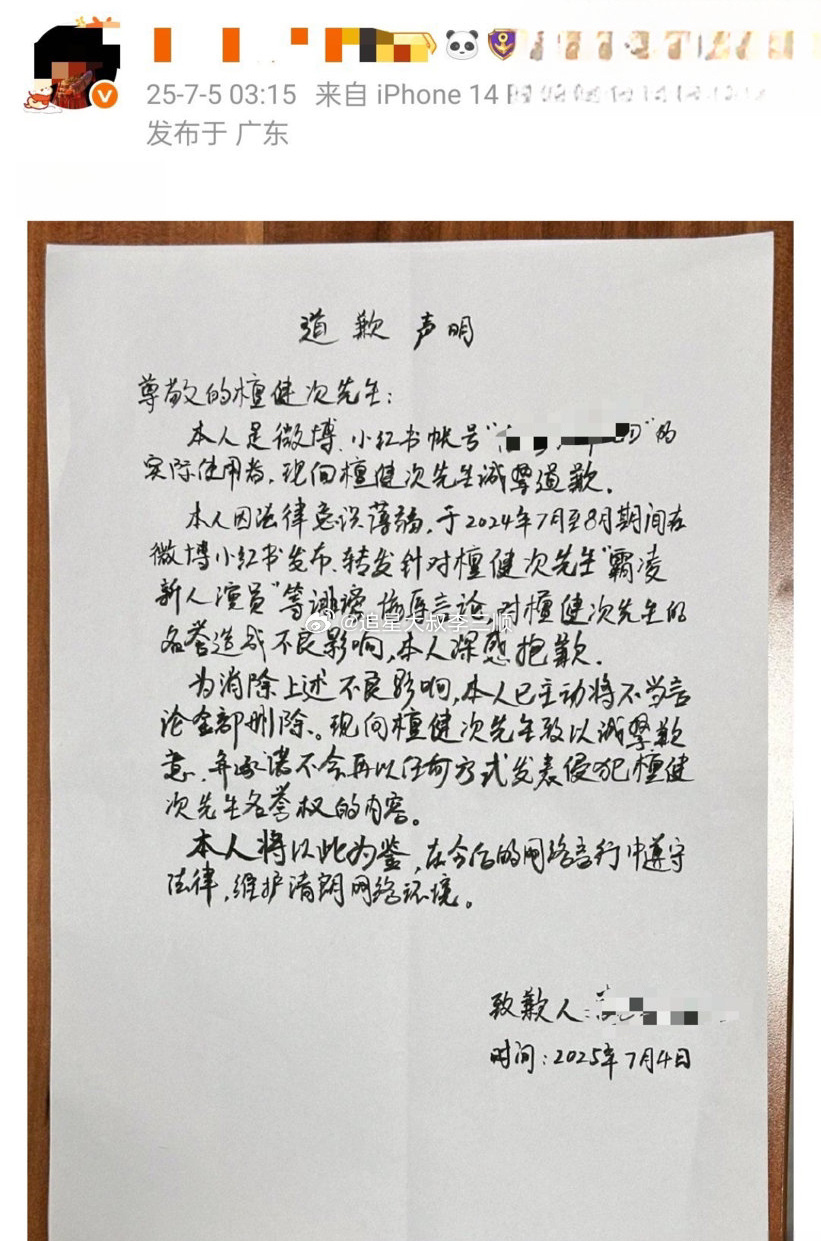 25-7-5 03:15 来自 iPhone 14
发布于 广东
道歉声明
尊敬的檀健次先生：
本人是微博、小红书帐号“”的
实际使用者，现向檀健次先生诚挚道歉。
本人因法律意识薄弱，于2024年7月至8月期间在
微博小红书发布、转发针对檀健次先生“霸凌
新人演员”等诽谤、侮辱言论，对檀健次先生的
@追星大叔李三顺
名誉造成不良影响，本人深感抱歉。
为消除上述不良影响，本人已主动将不当言
论全部删除。现向檀健次先生致以诚挚歉
意，并承诺不会再以任何方式发表侵犯檀健
次先生名誉权的内容。
本人将以此为鉴，在今后的网络言行中遵守
法律，维护清朗网络环境。
致歉人：
时间：2025年7月4日